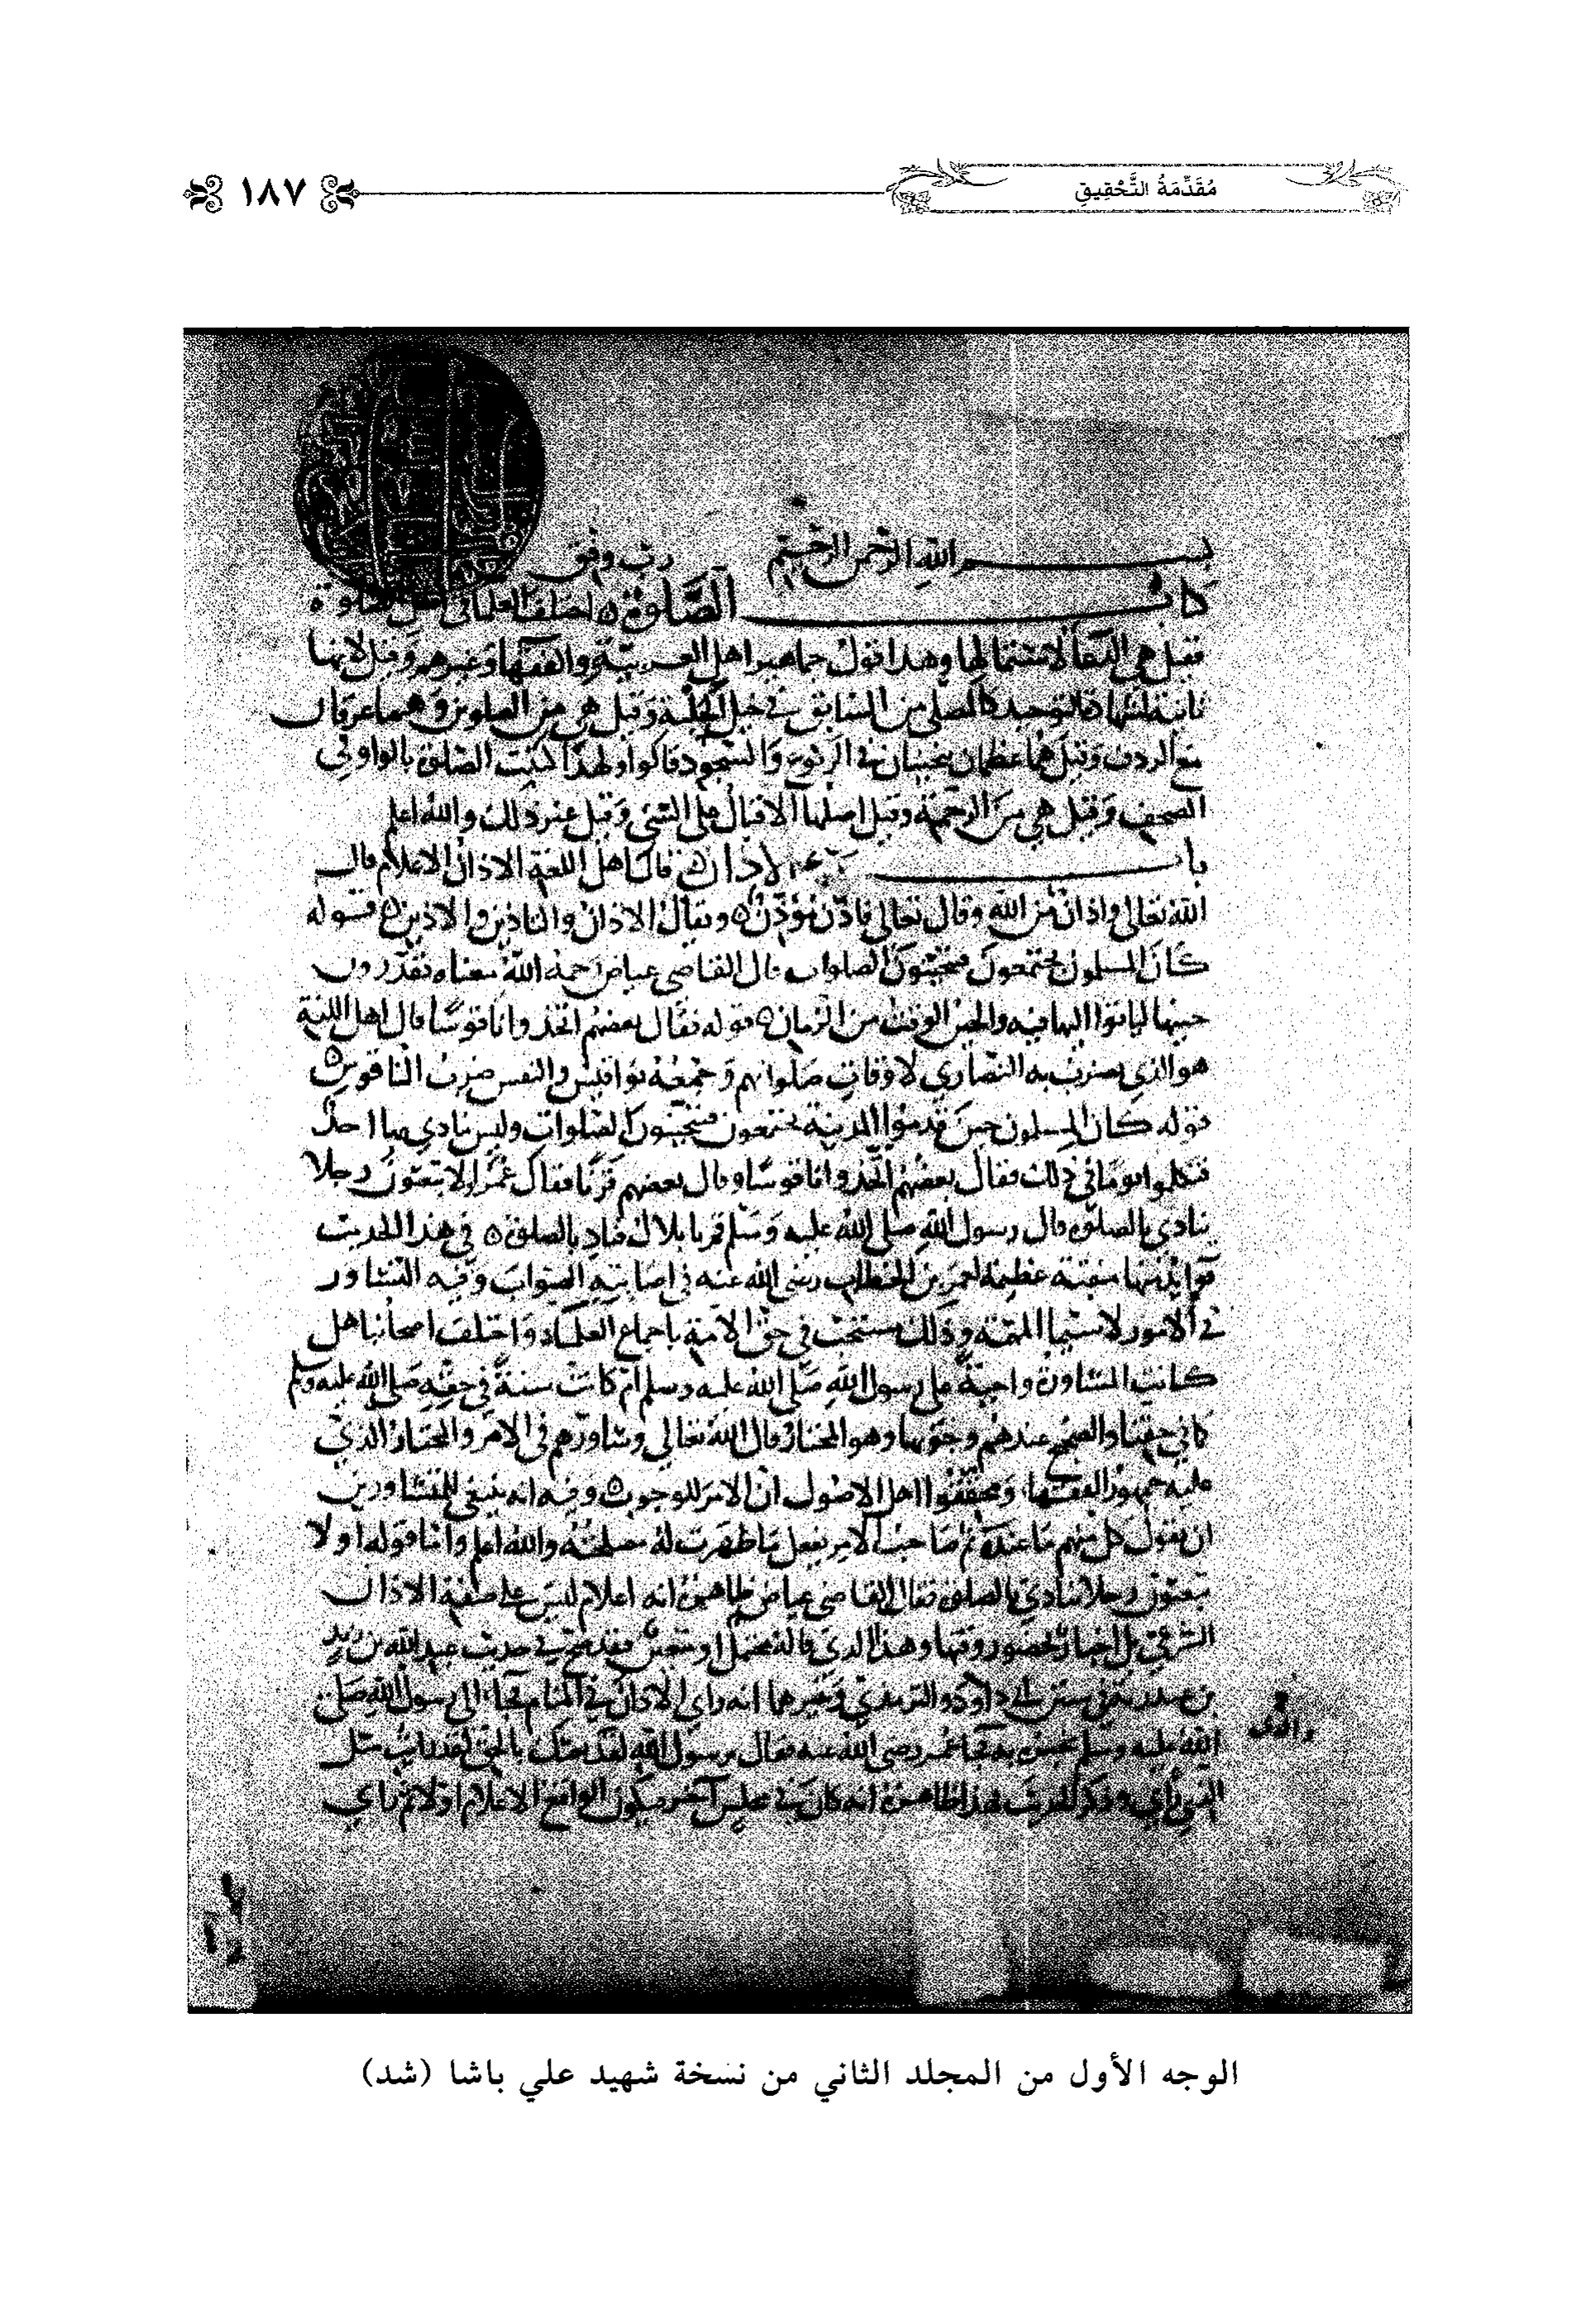 مُقَدِّمَةُ التَّحْقِيقِ
١٨٧
بسم الله الرحمن الرحيم رب وفق
كتاب الصلوة اختلف العلما في اصل الصلوة
فقيل هي الدعا لاشتمالها وهذا قول جماهير اهل العربية والفقها وغيرهم وقيل لانها
ثانية للشهادة التوحيد كالمصلي من السابق في خيل الحلبة وقيل هي من الصلوين وهما عرقان
مع الردف وقيل هما عظمان ينحنيان في الركوع والسجود قالوا ولهذا كتبت الصلوة بالواو في
المصحف وقيل هي من الرحمة وقيل اصلها الاقبال على الشي وقيل غير ذلك والله اعلم
باب الاذان قال اهل اللغة الاذان الاعلام قال
الله تعالى واذان من الله وقال تعالى فاذن مؤذن ويقال الاذان والتاذين والاذين قوله
كان المسلمون يجتمعون فيتحينون الصلوات قال القاضي عياض رحمه الله معناه يقدرون
حينها لياتوا اليها فيه والحين الوقت من الزمان قوله فقال بعضهم اتخذوا ناقوسا قال اهل اللغة
هو الذي يضرب به النصارى لاوقات صلواتهم وجمعه نواقيس والنقس ضرب الناقوس
قوله كان المسلمون حين قدموا المدينة يجتمعون فيتحينون الصلوات وليس ينادي بها احد
فتكلموا يوما في ذلك فقال بعضهم اتخذوا ناقوسا وقال بعضهم قرنا فقال عمر اولا تبعثون رجلا
ينادي بالصلوة قال رسول الله صلى الله عليه وسلم قم يا بلال فناد بالصلوة في هذا الحديث
فوايد منها منقبة عظيمة لعمر بن الخطاب رضي الله عنه في اصابته الصواب وفيه التشاور
في الامور لا سيما المهمة وذلك مستحب في حق الامة باجماع العلماء واختلف اصحابنا هل
كانت المشاورة واجبة على رسول الله صلى الله عليه وسلم ام كانت سنة في حقه صلى الله عليه وسلم
كما في حقنا والصحيح عندهم وجوبها وهو المختار قال الله تعالى وشاورهم في الامر والمختار الذي
عليه جمهور الفقها ومحققوا اهل الاصول ان الامر للوجوب وفيه انه ينبغي للمتشاورين
ان يقول كل منهم ما عنده ثم صاحب الامر يفعل ما ظهرت له مصلحته والله اعلم واما قوله اولا
تبعثون رجلا ينادي بالصلوة فقال القاضي عياض ظاهره انه اعلام ليس على صفة الاذان
الشرعي بل اخبار بحضور وقتها وهذا الذي قاله محتمل او متعين فقد صح في حديث عبد الله بن زيد
بن عبد ربه في سنن ابي داود والترمذي وغيرهما انه راى الاذان في المنام فجاء الى رسول الله صلى
الله عليه وسلم يخبره به فجا عمر رضي الله عنه فقال يرسول الله لقد بعثك بالحق لقد رايت مثل
الذي راي وذكر الحديث فهذا ظاهره انه كان في مجلس آخر فيكون الواقع الاعلام اولا ثم راي
الوجه الأول من المجلد الثاني من نسخة شهيد علي باشا (شد)